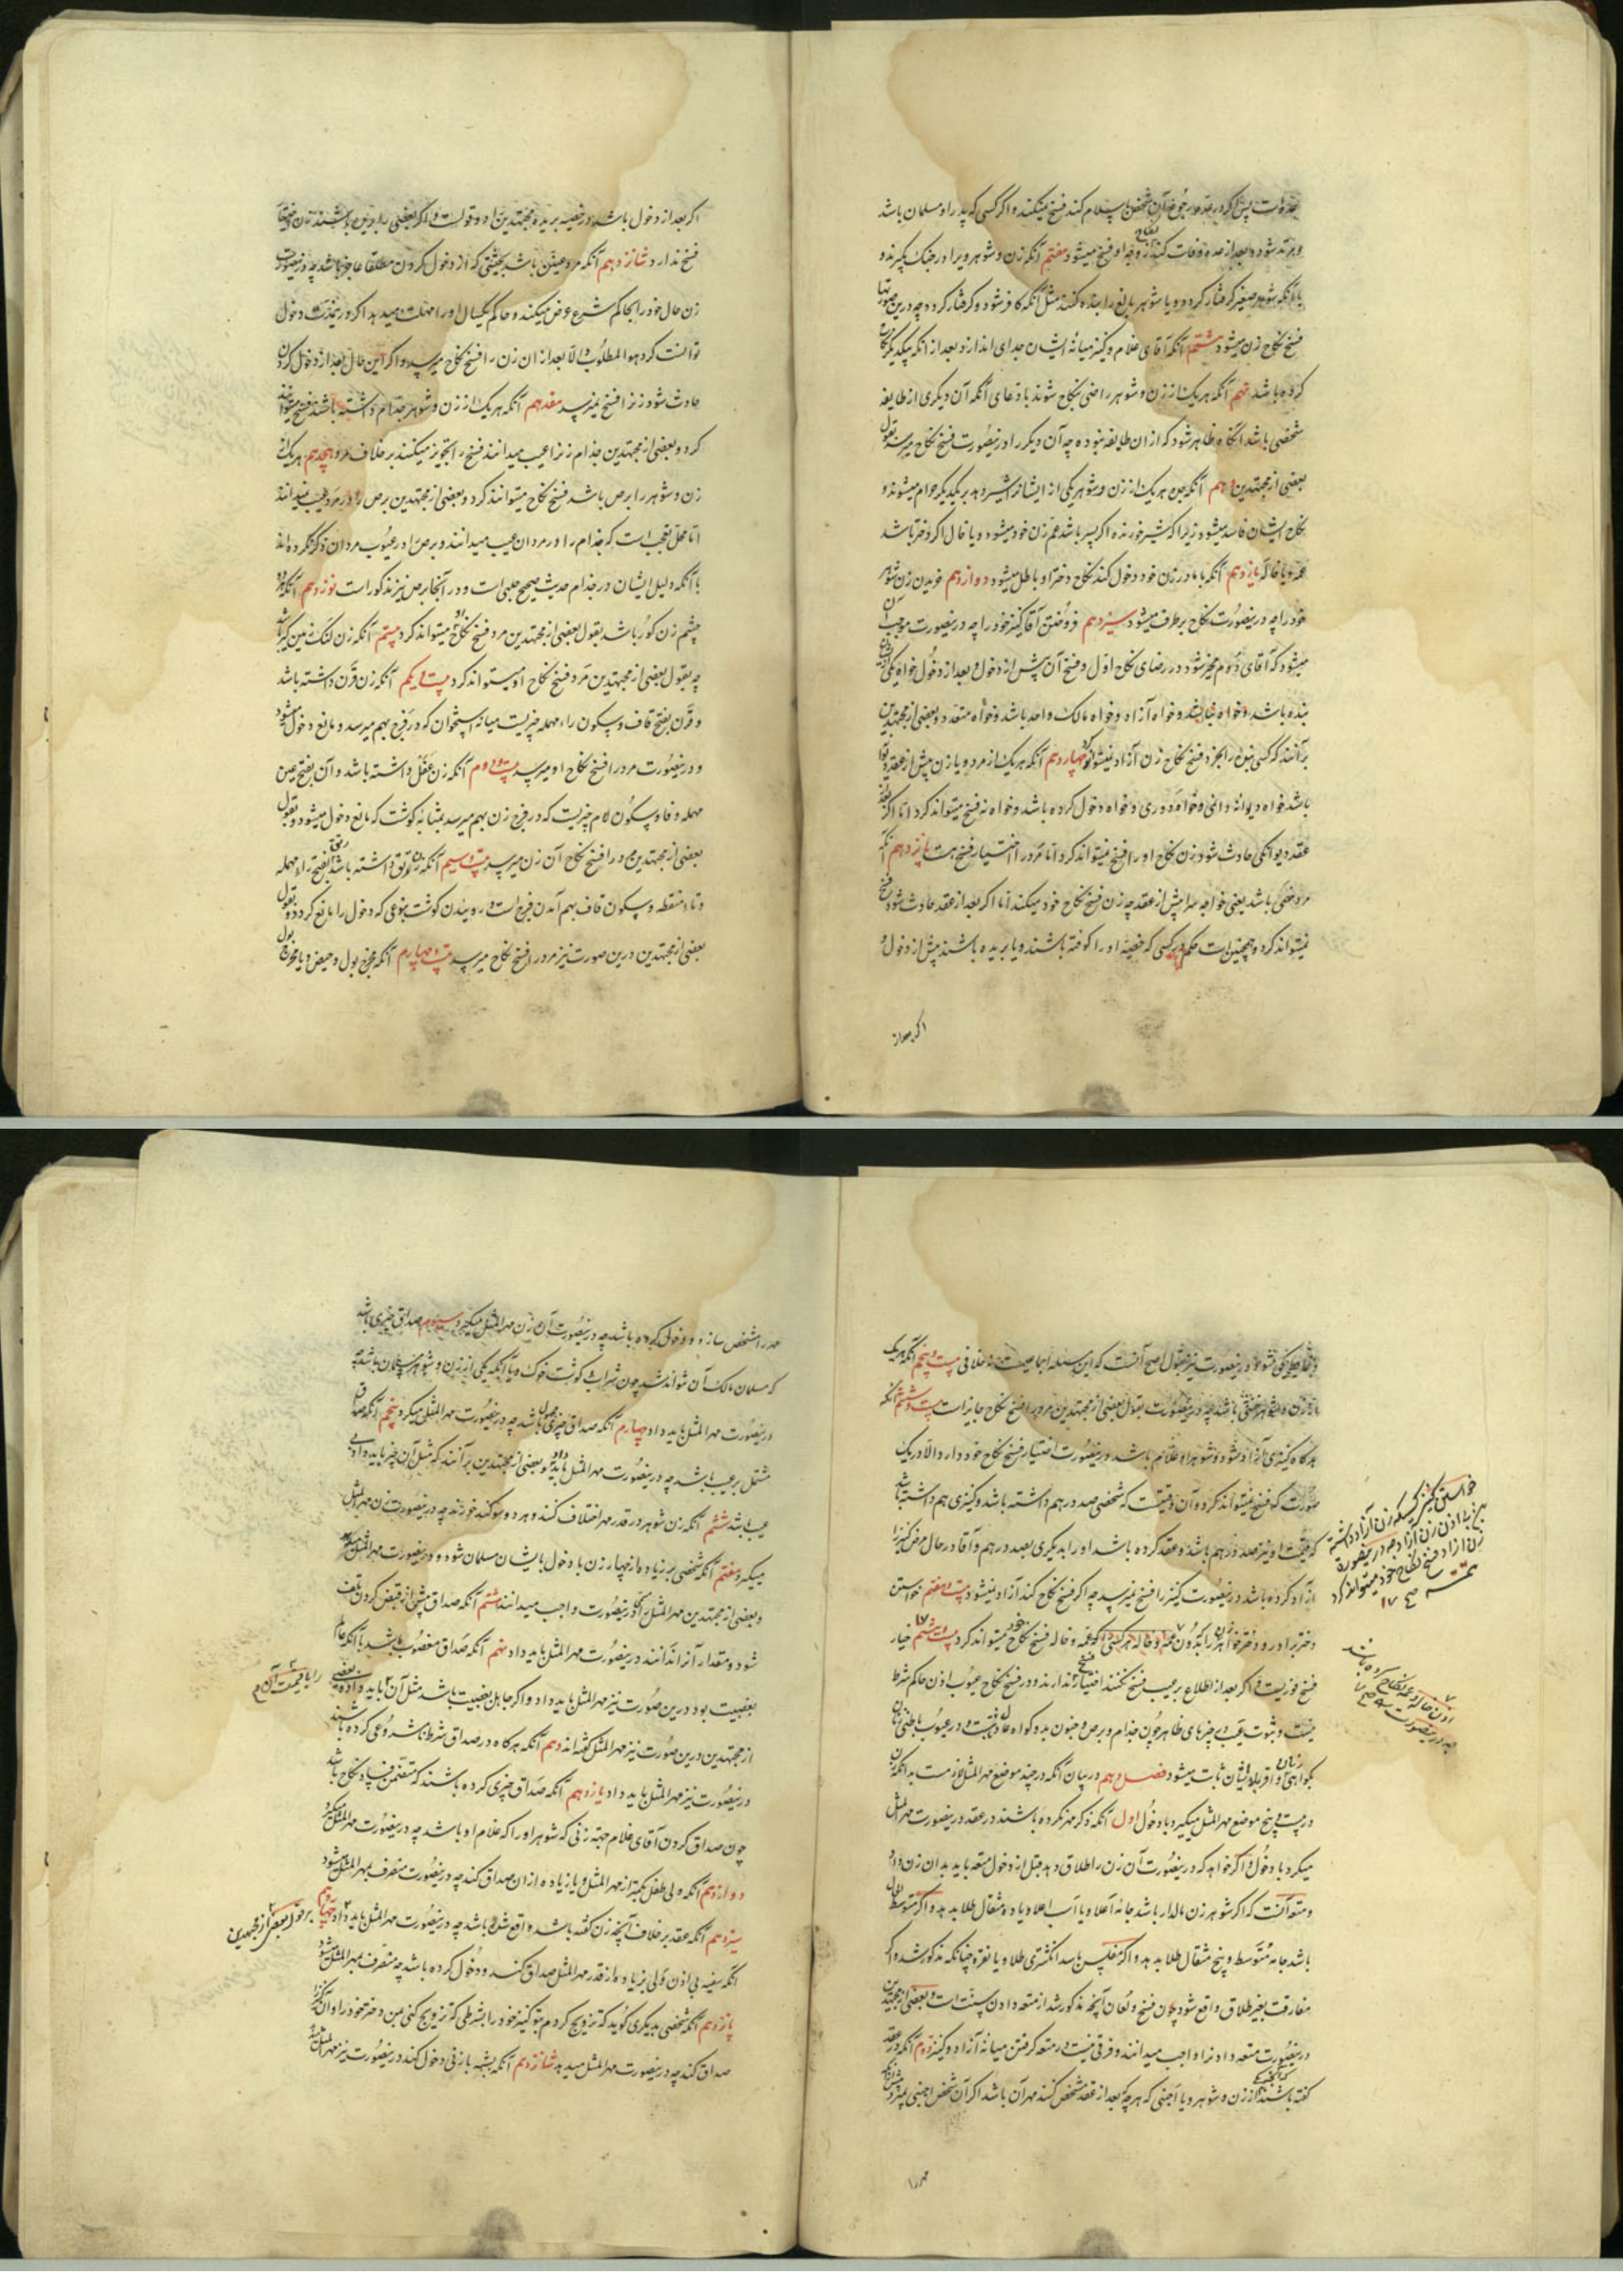 و مرتد شود و بعد از عده وفات کند زوجه او فسخ میشود هفتم آنکه زن و شوهر ویرا در جنک بکیرند و
یا آنکه شوهر صغیر کرفتار کردد و یا شوهر بالغ را بنده کنند مثل آنکه کافر شود و کرفتار کردد چه درین صورتها
فسخ نکاح زن میشود هشتم آنکه آقای غلام و کنیز میانه ایشان جدای اندازد بعد از آنکه بیکدیکر نکاح
کرده باشد نهم آنکه هر یک از زن و شوهر راضی بنکاح شوند بادعای آنکه آن دیکری از طایفه
شخصی باشد آنکاه ظاهر شود که از ان طایفه نبوده چه آن دیکر را درینصورت فسخ نکاح میرسد بقول
بعضی از مجتهدین دهم آنکه چون هر یک از زن و شوهر یکی از ایشانرا شیر دهد بر یکدیکر حرام میشوند و
نکاح ایشان فاسد میشود زیرا که شیر خورنده اکر پسر باشد عم زن خود میشود و یا خال اکر دختر باشد
عمه و یا خاله یازدهم آنکه با مادر زن خود دخول کند نکاح دختر او باطل میشود دوازدهم خریدن زن شوهر
خود را چه درینصورت نکاح بر طرف میشود سیزدهم فروختن آقا کنیز خود را چه درینصورت موجب آن
میشود که آقای دوم مخیر شود در رضای نکاح اول و فسخ آن پیش از دخول و بعد از دخول خواه یکی
بنده باشد و خواه نباشد و خواه آزاد و خواه مالک واحد باشد و خواه متعدد و بعضی از مجتهدین
برآنند که کسی بنده را بخرد فسخ نکاح زن آزاد نمیشود چهاردهم آنکه هر یک از مرد و یا زن پیش از عقد دیوانه
باشد خواه دیوانه دائمی و خواه دوری و خواه دخول کرده باشد و خواه نه فسخ میتواند کرد اما اکر بعد
عقد دیوانکی حادث شود زن نکاح او را فسخ میتواند کرد اما مرد را اختیار فسخ هست پانزدهم آنکه
مرد خصی باشد یعنی خواجه سرا پیش از عقد چه زن فسخ نکاح خود میکند اما اکر بعد از عقد حادث شود فسخ
نمیتواند کرد و همچنین است حکم در کسی که خصیه او را کوفته باشند و یا بریده باشند پیش از دخول و
اکر بعد از
اکر بعد از دخول باشد در خصیه بریده مجتهدین را دو قولست و اکر بعضی
فسخ ندارد شانزدهم آنکه مرد عنین باشد بحیثیتی که از دخول کردن مطلقا عاجز باشد چه درینصورت
زن حال خود را بحاکم شرع عرض میکند و حاکم یکسال او را مهلت میدهد اکر درینمدت دخول
توانست کرد هو المطلوب و الا بعد از ان زن را فسخ نکاح میرسد و اکر این حال بعد از دخول کردن
حادث شود زنرا فسخ نمیرسد هفدهم آنکه هر یک از زن و شوهر جذام داشته باشند فسخ میتوانند
کرد و بعضی از مجتهدین جذام زنرا عیب میدانند فسخ را تجویز میکنند بر خلاف مرد هیجدهم هر یک از
زن و شوهر را برص باشد فسخ نکاح میتوانند کرد و بعضی از مجتهدین برص را در مرد عیب نمیدانند
اما محل تعجب است که جذام را در مردان عیب میدانند و برص را در عیوب مردان ذکر نکرده اند
با آنکه دلیل ایشان در جذام حدیث صحیح حلبی است و در آنجا برص نیز مذکور است نوزدهم آنکه
چشم زن کور باشد بقول بعضی از مجتهدین مرد فسخ نکاح او میتواند کرد بیستم آنکه زن لنک زمین گیر باشد
چه بقول بعضی از مجتهدین مرد فسخ نکاح او میتواند کرد بیست و یکم آنکه زن قرن داشته باشد
و قرن بفتح قاف و سکون راء مهمله چیزیست میانه استخوان که در فرج بهم میرسد و مانع دخول میشود
و درینصورت مرد را فسخ نکاح او میرسد بیست و دوم آنکه زن عفل داشته باشد و آن بفتح عین
مهمله و فا و سکون لام چیزیست که در فرج زن بهم میرسد بمثابه کوشت که مانع دخول میشود و بقول
بعضی از مجتهدین مرد را فسخ نکاح آن زن میرسد بیست و سیم آنکه زن رتق داشته باشد بفتح راء مهمله
و تاء منقطه و سکون قاف بهم آمدن فرج است و روییدن کوشت بنوعی که دخول را مانع کردد و بقول
بعضی از مجتهدین درین صورت نیز مرد را فسخ نکاح میرسد بیست و چهارم آنکه مخرج بول و حیض و یا مخرج بول
و غایط یکی شود درینصورت نیز بقول اصح آنست که این مسئله اجماعیست نه خلافی بیست و پنجم آنکه هر یک
از زن و شوهر خنثی باشد چه درینصورت بقول بعضی از مجتهدین مرد را فسخ نکاح جایز است بیست و ششم آنکه
هر کاه کنیزی آزاد شود و شوهر او غلام باشد درینصورت اختیار فسخ نکاح خود دارد الا در یک
صورت که فسخ نمیتواند کرد و آن وقتیست که شخصی صد درهم داشته باشد و کنیزی هم داشته باشد
که قیمت او نیز صد درهم باشد و عقد کرده باشد او را بدیکری بصد درهم و آقا در حال مرض کنیز را
آزاد کرده باشد درینصورت کنیز را فسخ نمیرسد چه اکر فسخ نکاح کند آزاد نمیشود بیست و هفتم خواستن
دختر برادر و دختر خواهر زن را بدون عمه و خاله فسخ نکاح خود میتواند کرد بیست و هشتم خیار
فسخ فوریست و اکر بعد از اطلاع بر عیب فسخ نکنند اختیار فسخ ندارند و در فسخ نکاح عیوب اذن حاکم شرط
نیست و ثبوت عیب چیزهای ظاهر چون جذام و برص و جنون بدو کواه عادلست و در عیوب باطنی زنان
بکواهی زنان و اقرار ایشان ثابت میشود فصل دهم در بیان آنکه در چند موضع مهر المثل لازمست بدانکه زن
در بیست و پنج موضع مهر المثل میکیرد با دخول اول آنکه ذکر مهر نکرده باشند در عقد درینصورت مهر المثل
میکیرد با دخول و اکر خواهد که درینصورت آن زن را طلاق دهد قبل از دخول متعه باید بدان زن داد
و متعه آنست که اکر شوهر زن مالدار باشد جامه اعلا و یا اسب اعلا و یا ده مثقال طلا بدهد و اکر متوسط الحال
باشد جامه متوسط و پنج مثقال طلا بدهد و اکر مفلس باشد انکشتری طلا و یا نقره چنانکه مذکور شد و اکر
مفارقت بغیر طلاق واقع شود چون فسخ و لعان آنچه مذکور شد از متعه دادن سنت است و بعضی از مجتهدین
درینصورت متعه دادنرا واجب میدانند و فرقی نیست در متعه کرفتن میانه آزاد و کنیز دوم آنکه در عقد
کفته باشند از زن و شوهر و یا اجنبی که هر چه بعد از عقد مشخص کنند مهر آن باشد اکر آن شخص اجنبی بمیرد پیش از آنکه
مهر را
خواستن کنیز کسیکه زن آزاد داشته
بی اذن زن آزاد چه درینصورت
زن آزاد فسخ نکاح خود میتواند کرد
اذن خاله و عمه نکاح کرده باشد
چه درینصورت
مهر را مشخص سازد و دخول کرده باشد چه درینصورت آن زن مهر المثل میکیرد سیوم صداق چیزی باشد
که مسلمان مالک آن نتواند شد چون شراب و کوشت خوک و یا آنکه یکی از زن و شوهر مسلمان باشد چه
درینصورت مهر المثل باید داد چهارم آنکه صداق چیزی مجهول باشد چه درینصورت مهر المثل میکیرد پنجم آنکه صداق
مشتمل بر عیب باشد چه درینصورت مهر المثل باید داد و بعضی از مجتهدین برآنند که مثل آن چیز باید داد بی
عیب باشد ششم آنکه زن شوهر در قدر مهر اختلاف کنند و هر دو سوکند خورند چه درینصورت زن مهر المثل
میکیرد هفتم آنکه شخصی بر زیاده از چهار زن با دخول بایشان مسلمان شود و درینصورت مهر المثل میدهد
و بعضی از مجتهدین مهر المثل را درینصورت واجب میدانند هشتم آنکه صداق پیش از قبض کردن تلف
شود و مقدار آنرا ندانند درینصورت مهر المثل باید داد نهم آنکه صداق مغصوب باشد با آنکه عالم
بغصبیت بود درین صورت نیز مهر المثل باید داد و اکر جاهل بغصبیت باشد مثل آن باید داد و بعضی
از مجتهدین درین صورت نیز مهر المثل کفته اند دهم آنکه هر کاه در صداق شرط نامشروعی کرده باشند
درینصورت نیز مهر المثل باید داد یازدهم آنکه صداق چیزی کرده باشند که متضمن فساد نکاح باشد
چون صداق کردن آقای غلام جهة زنی که شوهر او را که غلام او باشد چه درینصورت مهر المثل میکیرد
دوازدهم آنکه ولی طفل بکمتر از مهر المثل و یا زیاده از ان صداق کند چه درینصورت منصرف بمهر المثل میشود
سیزدهم آنکه عقد بر خلاف آنچه زن کفته باشد واقع شده باشد چه درینصورت مهر المثل باید داد چهاردهم
آنکه سفیه بی اذن ولی بزیاده از قدر مهر المثل صداق کند و دخول کرده باشد چه منصرف بمهر المثل میشود
پانزدهم آنکه شخصی بدیکری کوید که تزویج کردم بتو کنیز خود را بشرطی که تزویج کنی بمن دختر خود را و آن کنیز را
صداق کند چه درینصورت مهر المثل میدهد شانزدهم آنکه بشبهه با زنی دخول کند درینصورت نیز مهر المثل باید
را یا قیمت آن
بر قول بعضی از مجتهدین